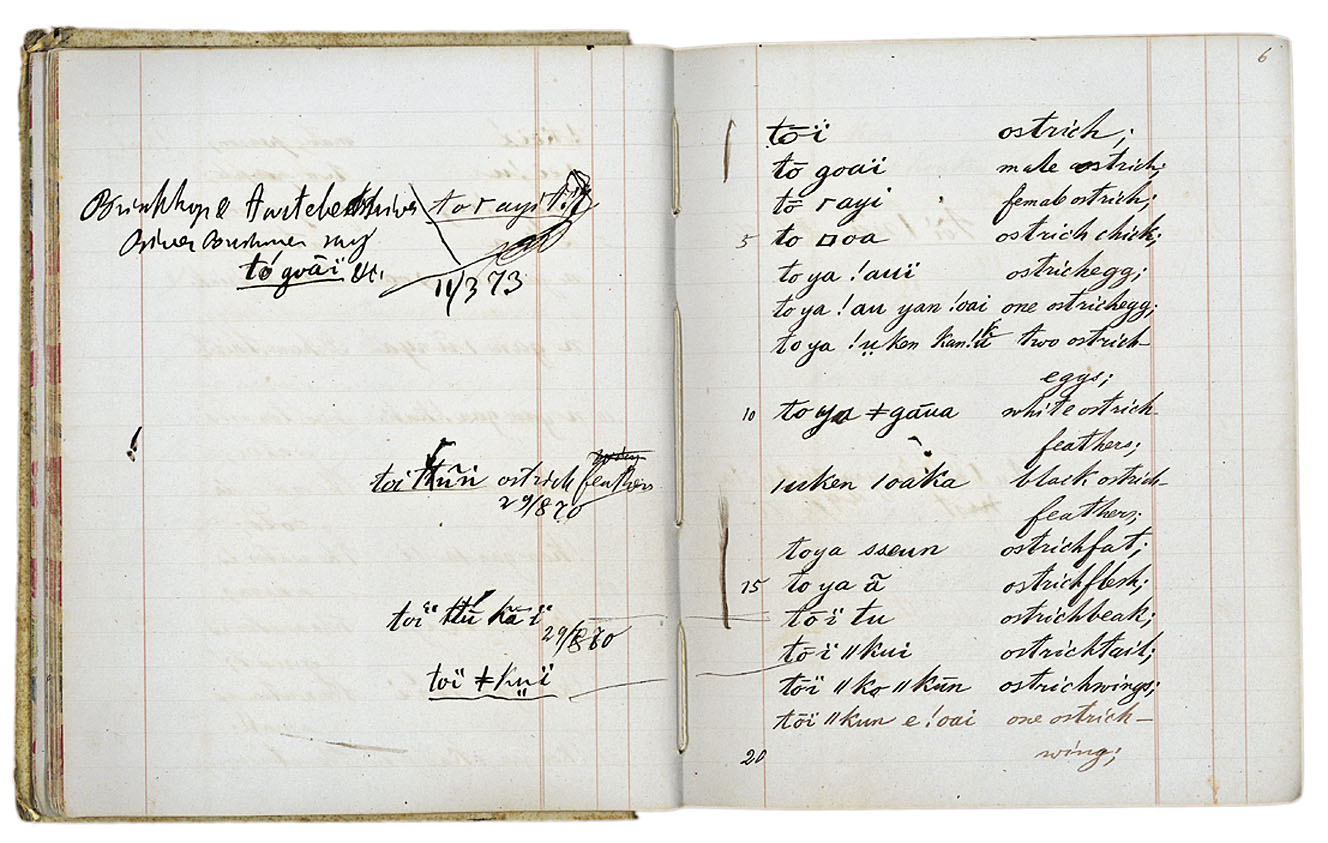 Brinkkop & River to r ayi
River Bushmen say
tó goāï &c.
11/3 73
toï ostrich feathers
29/8 70
toï kā ï
29/8 70
toï ǂkui
6
tō-ï ostrich;
tō goaï male ostrich;
tō r ayi female ostrich;
5 to ◻oa ostrich chick;
to ya !auï ostrichegg;
to ya !au yan !oai one ostrichegg;
to ya !ṳken two ostrich-
eggs;
10 to ya ǂgāua white ostrich-
feathers;
ıuken ıoaka black ostrich-
feathers;
toya sseun ostrichfat;
15 to ya ã ostrichflesh;
tō ï tu ostrichbeak;
tō ï ǁkui ostrichtail;
tōï ǁko ǁkūn ostrichwings;
tōï ǁkun e !oai one ostrich-
20 wing;